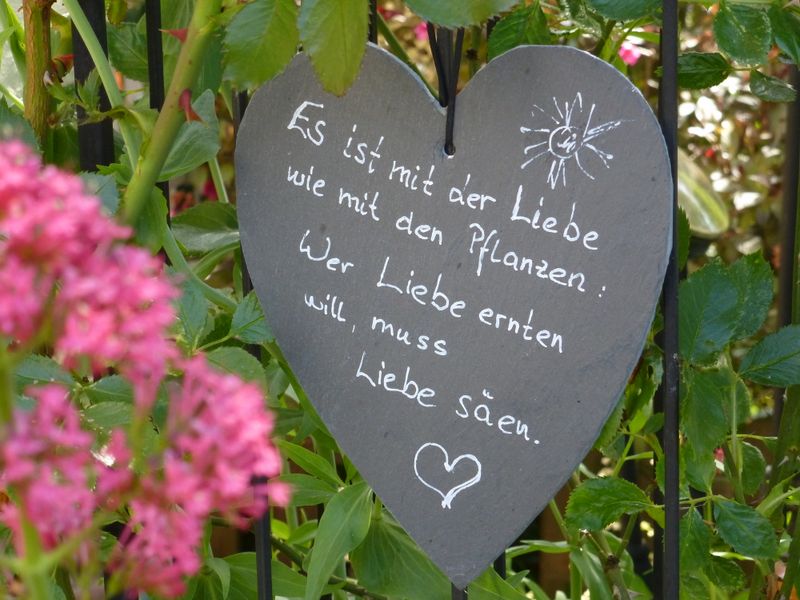 Es ist mit der Liebe
wie mit den Pflanzen:
Wer Liebe ernten
will, muss
Liebe säen.